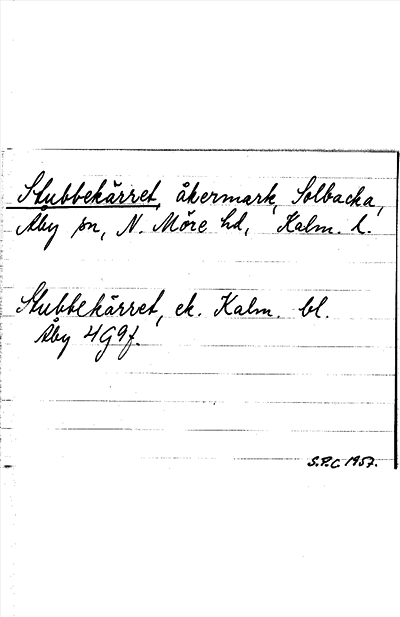 Stubbekärret, åkermark, Solbacka,
Åby sn, N. Möre hd, Kalm. l.
Stubbekärret, ek. Kalm. bl.
Åby 4G9f.
S.P.C 1957.